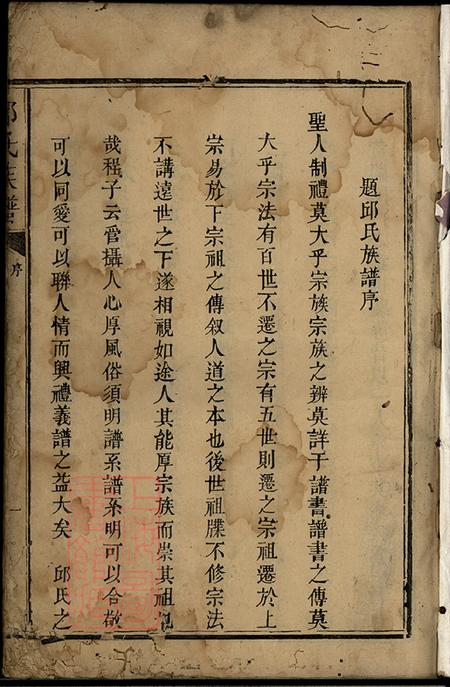 題邱氏族譜序
聖人制禮莫大乎宗族宗族之辨莫詳于譜書譜書之傳莫
大乎宗法有百世不遷之宗有五世則遷之宗祖遷於上
宗易於下宗祖之傳叙人道之本也後世祖牒不修宗法
不講遠世之下遂相視如途人其能厚宗族而崇其祖
哉程子云管攝人心厚風俗須明譜系譜系明可以合敬
可以同愛可以聯人情而興禮義譜之益大矣 邱氏之
氏族譜
序
一